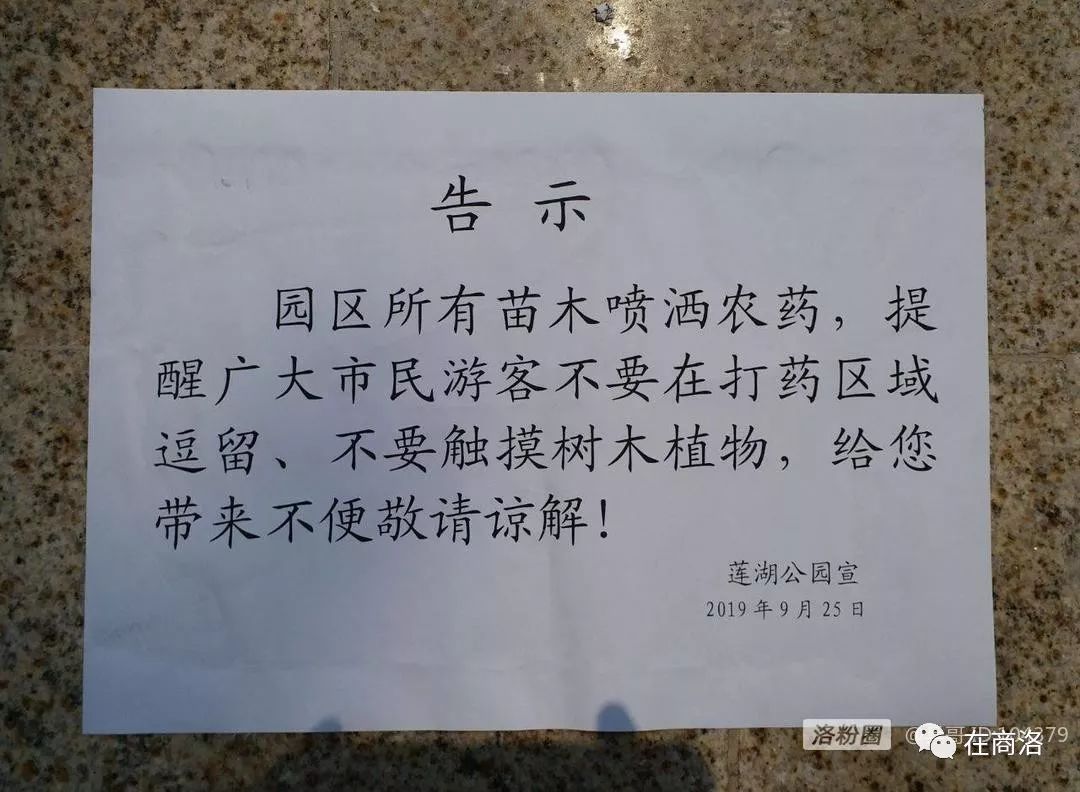 告 示
园区所有苗木喷洒农药，提
醒广大市民游客不要在打药区域
逗留、不要触摸树木植物，给您
带来不便敬请谅解！
莲湖公园宣
2019年9月25日
洛粉圈
在商洛